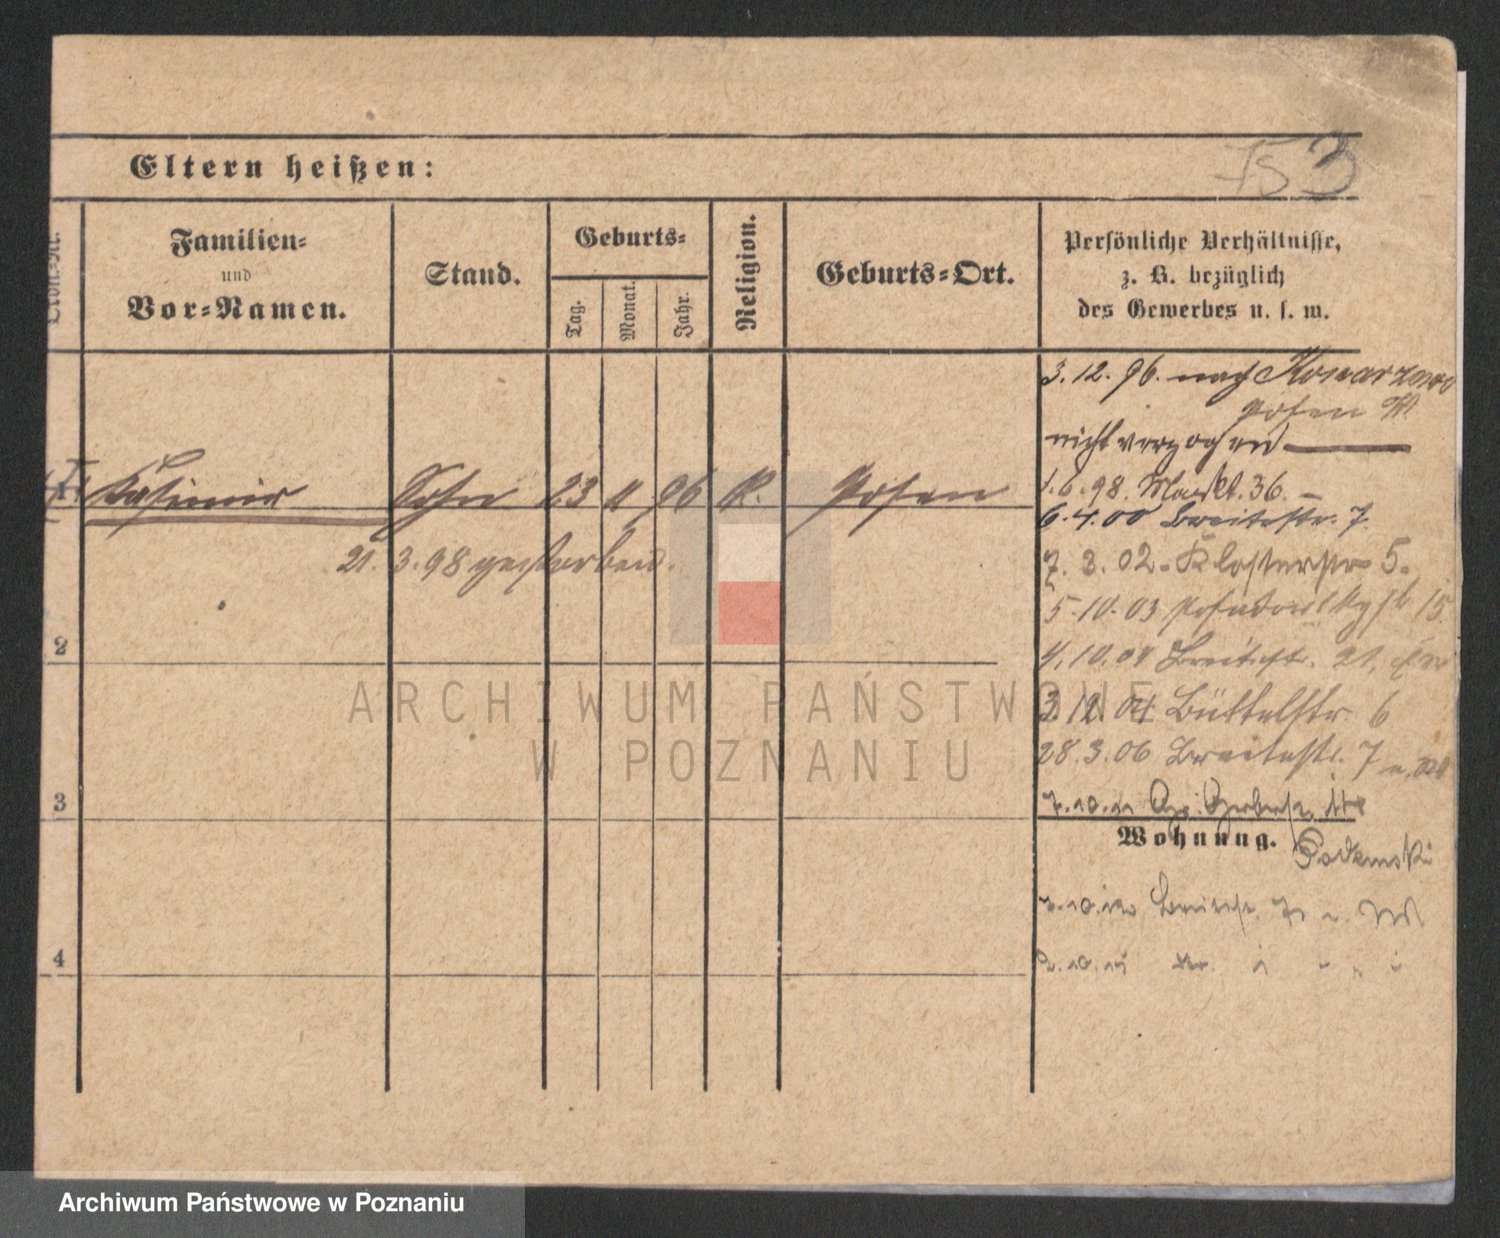 Eltern heißen:
Familien-
und
Vor-Namen.
Stand.
Geburts-
Tag.
Monat.
Jahr.
Religion.
Geburts-Ort.
Persönliche Verhältnisse,
z. B. bezüglich
des Gewerbes u. s. w.
3. 12. 96. nach
Posen W
nicht verzogen
Kasimir Sohn 23 11 96 K. Posen
21. 3. 98 gestorben.
1. 6. 98. Markt. 36.
6. 4. 00 Breitestr. 7.
7. 3. 02 - Klosterstr 5.
5. 10. 03 15
4. 10. 04 Breitestr. 21,
3. 12. 04 Büttelstr. 6
28. 3. 06 Breitestr. 7
2
3
Wohnung.
4
ARCHIWUM PAŃSTWOWE
W POZNANIU
Archiwum Państwowe w Poznaniu